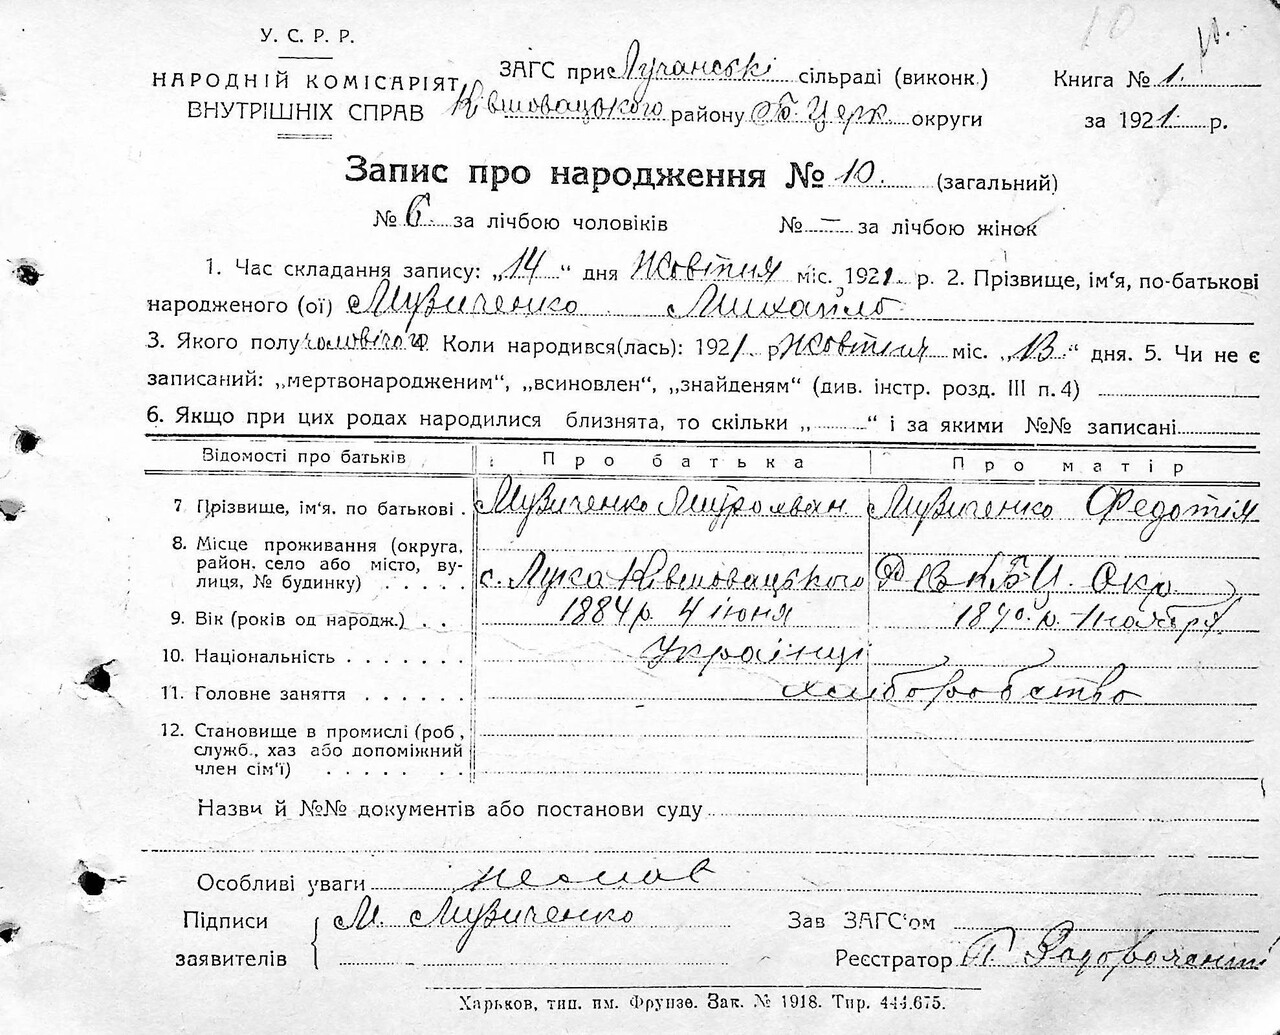 10
У. С. Р. Р.
НАРОДНІЙ КОМІСАРІЯТ
ВНУТРІШНІХ СПРАВ
ЗАГС при Лучанські сільраді (виконк.)
Ківшовацького району Б-Церк округи
Книга № 1.
за 1921 р.
Запис про народження № 10. (загальний)
№ 6 за лічбою чоловіків № — за лічбою жінок
1. Час складання запису: „14“ дня Жовтня міс. 1921 р. 2. Прізвище, ім‘я, по-батькові
народженого (ої) Музиченко Михайло
3. Якого полу чоловічого 4. Коли народився(лась): 1921. р Жовтня міс. „13“ дня. 5. Чи не є
записаний: „мертвонародженим“, „всиновлен“, „знайденям“ (див. інстр. розд. III п. 4)
6. Якщо при цих родах народилися близнята, то скільки „ “ і за якими №№ записані
Відомості про батьків Про батька Про матір
7 Прізвище, ім‘я. по батькові . Музиченко Митрофан Музиченко Федотія
8. Місце проживання (округа,
район, село або місто, ву-
лиця, № будинку) . . . . с. Лука Ківшовацького Б Ц. Окр.
9. Вік (років од народж.) . . 1884 р. 4 июня ноября
10. Національність . . . . . . . Українці
11. Головне заняття . . . . . . хліборобство
12. Становище в промислі (роб,
служб., хаз або допоміжний
член сім‘ї) . . . . . . .
Назви й №№ документів або постанови суду
Особливі уваги
Підписи М. Музиченко Зав ЗАГС‘ом
заявителів Реєстратор Г.
Харьков, тип. им. Фрунзе. Зак. № 1918. Тир. 444.675.